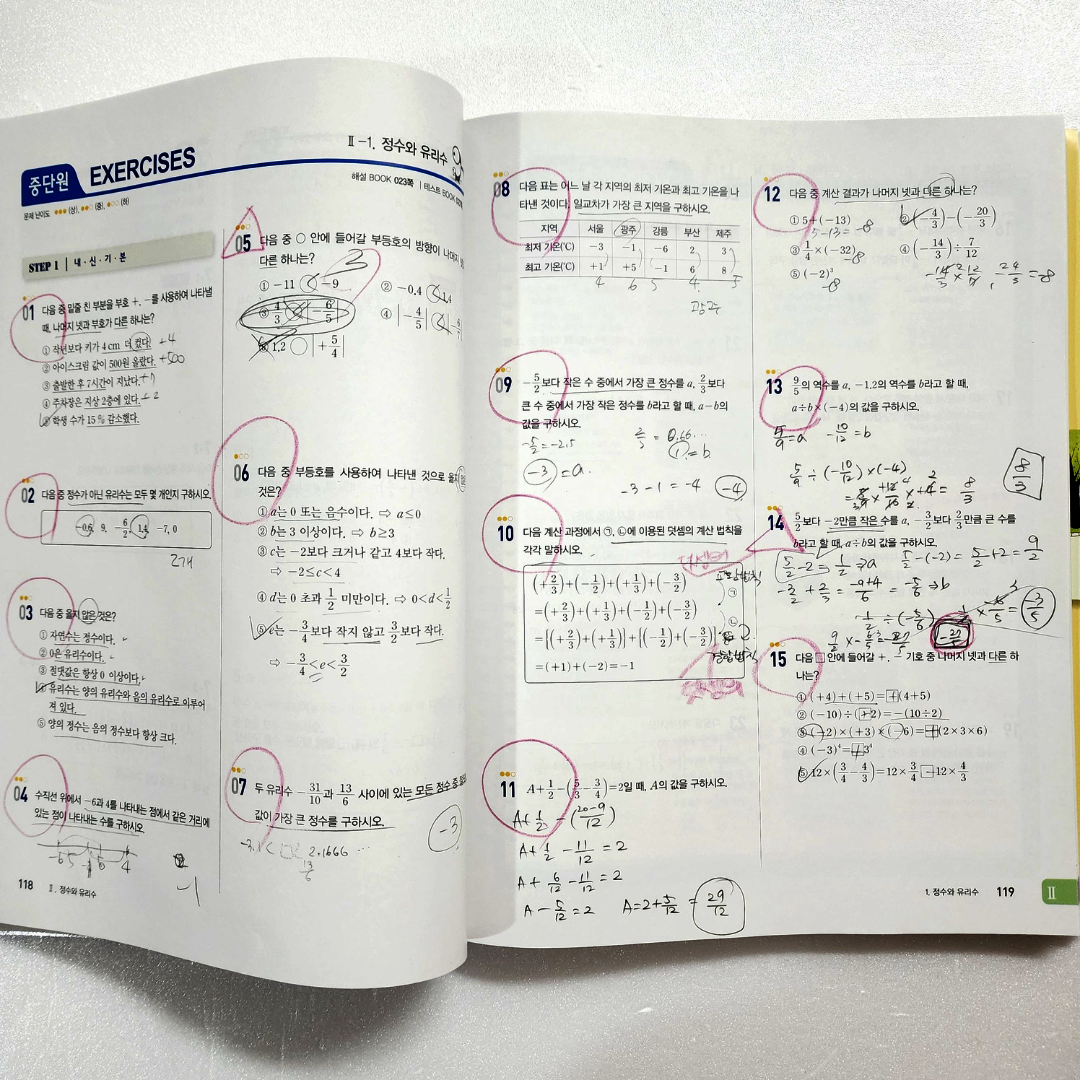 중단원 EXERCISES
Ⅱ-1. 정수와 유리수
해설 BOOK 023쪽 | 테스트 BOOK
문제 난이도 (상), (중), (하)
STEP 1 | 내·신·기·본
01 다음 중 밑줄 친 부분을 부호 +, -를 사용하여 나타낼
때, 나머지 넷과 부호가 다른 하나는?
① 작년보다 키가 4 cm 더 컸다. +4
② 아이스크림 값이 500원 올랐다. +500
③ 출발한 후 7시간이 지났다. +7
④ 주차장은 지상 2층에 있다. +2
⑤ 학생 수가 15 % 감소했다.
02 다음 중 정수가 아닌 유리수는 모두 몇 개인지 구하시오.
-0.6, 9, -6/2, 1.4, -7, 0
2개
03 다음 중 옳지 않은 것은?
① 자연수는 정수이다.
② 0은 유리수이다.
③ 절댓값은 항상 0 이상이다.
④ 유리수는 양의 유리수와 음의 유리수로 이루어
져 있다.
⑤ 양의 정수는 음의 정수보다 항상 크다.
04 수직선 위에서 -6과 4를 나타내는 점에서 같은 거리에
있는 점이 나타내는 수를 구하시오.
-1
118 Ⅱ. 정수와 유리수
05 다음 중 ○ 안에 들어갈 부등호의 방향이 나머지
다른 하나는?
3
① -11 < -9
② -0.4 < 1.4
③ 4/3 ○ |-6/5|
④ |-4/5| <
⑤ 1.2 ○ |+5/4|
06 다음 중 부등호를 사용하여 나타낸 것으로 옳지
것은?
① a는 0 또는 음수이다. ⇒ a≤0
② b는 3 이상이다. ⇒ b≥3
③ c는 -2보다 크거나 같고 4보다 작다.
⇒ -2≤c<4
④ d는 0 초과 1/2 미만이다. ⇒ 0<d<1/2
⑤ e는 -3/4보다 작지 않고 3/2보다 작다.
⇒ -3/4<e<3/2
07 두 유리수 -31/10과 13/6 사이에 있는 모든 정수 중
값이 가장 큰 정수를 구하시오.
-3
2.1666 ...
13/6
08 다음 표는 어느 날 각 지역의 최저 기온과 최고 기온을 나
타낸 것이다. 일교차가 가장 큰 지역을 구하시오.
지역 서울 광주 강릉 부산 제주
최저 기온(℃) -3 -1 -6 2 3
최고 기온(℃) +1 +5 -1 6 8
4 6 5 4 5
광주
09 -5/2보다 작은 수 중에서 가장 큰 정수를 a, 2/3보다
큰 수 중에서 가장 작은 정수를 b라고 할 때, a-b의
값을 구하시오.
-5/2 = -2.5
2/3 = 0.66...
-3 = a.
1 = b
-3-1 = -4
-4
10 다음 계산 과정에서 ㉠, ㉡에 이용된 덧셈의 계산 법칙을
각각 말하시오.
(+2/3)+(-1/2)+(+1/3)+(-3/2)
㉠
=(+2/3)+(+1/3)+(-1/2)+(-3/2)
㉡
={(+2/3)+(+1/3)}+{(-1/2)+(-3/2)}
=(+1)+(-2)=-1
11 A+1/2-(5/3-3/4)=2일 때, A의 값을 구하시오.
A+1/2-(20-9/12)
A+1/2-11/12=2
A+6/12-11/12=2
A-5/12=2 A=2+5/12=29/12
12 다음 중 계산 결과가 나머지 넷과 다른 하나는?
① 5+(-13)
② (-4/3)-(-20/3)
5-13=-8
③ 1/4×(-32) -8
④ (-14/3)÷7/12
⑤ (-2)³
-8
-14/3×12/7, -24/3=-8
13 9/5의 역수를 a, -1.2의 역수를 b라고 할 때,
a÷b×(-4)의 값을 구하시오.
5/9=a -10/12=b
5/9÷(-10/12)×(-4)
8/3
8/3
14 5/2보다 -2만큼 작은 수를 a, -3/2보다 2/3만큼 큰 수를
b라고 할 때, a÷b의 값을 구하시오.
5/2-2=1/2⇒a 5/2-(-2)=5/2+2=9/2
-3/2+2/3=-9+4/6=-5/6⇒b
1/2÷(-5/6)
-3/5
-27/5
15 다음 □ 안에 들어갈 +, - 기호 중 나머지 넷과 다른 하
나는?
① (+4)+(+5)=+(4+5)
② (-10)÷(+2)=-(10÷2)
③ (-2)×(+3)×(-6)=+(2×3×6)
④ (-3)⁴=+3⁴
⑤ 12×(3/4-4/3)=12×3/4-12×4/3
1. 정수와 유리수 119 Ⅱ